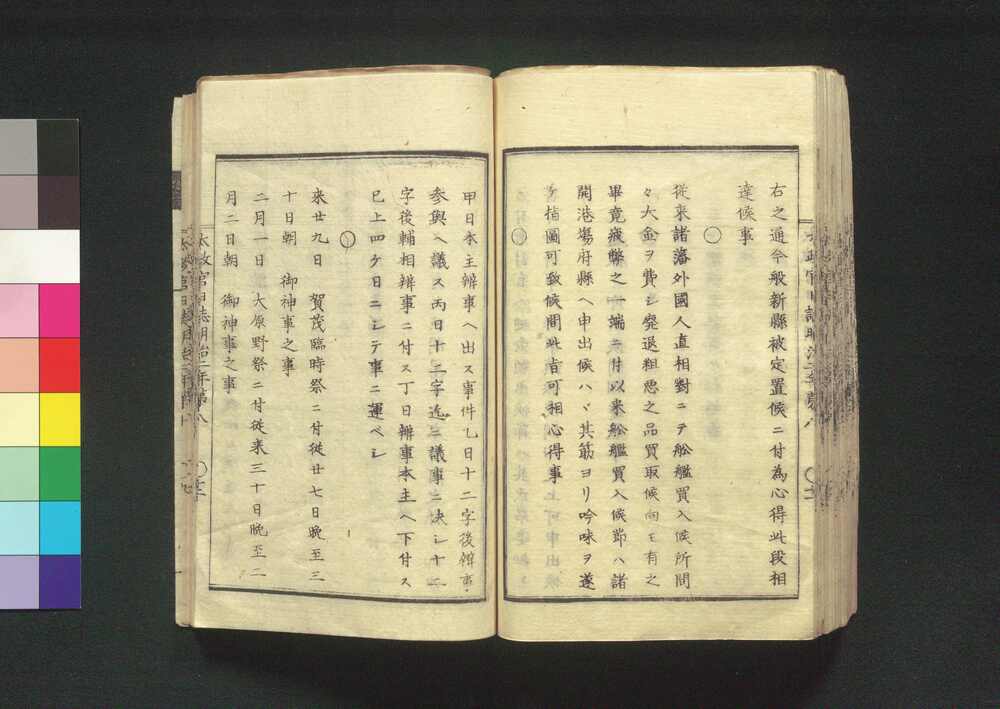 右之通今般新縣被定置候ニ付為心得此段相
達候事
○
從來諸藩外國人直相對ニテ舩艦買入候所間
々大金ヲ費シ廢退粗惡之品買取候向モ有之
畢竟疲弊之一端ニ付以来舩艦買入候節ハ諸
開港塲府縣ヘ申出候ハヾ其筋ヨリ吟味ヲ遂
ケ指圖可致候間此旨可相心得事
○
甲日本主辨事ヘ出ス事件乙日十二字後辨事
参與ヘ議ス丙日十三字迄ニ議事ニ决シ十二
字後輔相辨事ニ付ス丁日辨事本主ヘ下付ス
已上四ケ日ニシテ事ニ運ベシ
○
来廿九日　賀茂臨時祭ニ付從廿七日晩至三
十日朝　御神事之事
二月一日　大原野祭ニ付從来三十日晩至二
月二日朝　御神事之事
太政官日誌明治二年第八